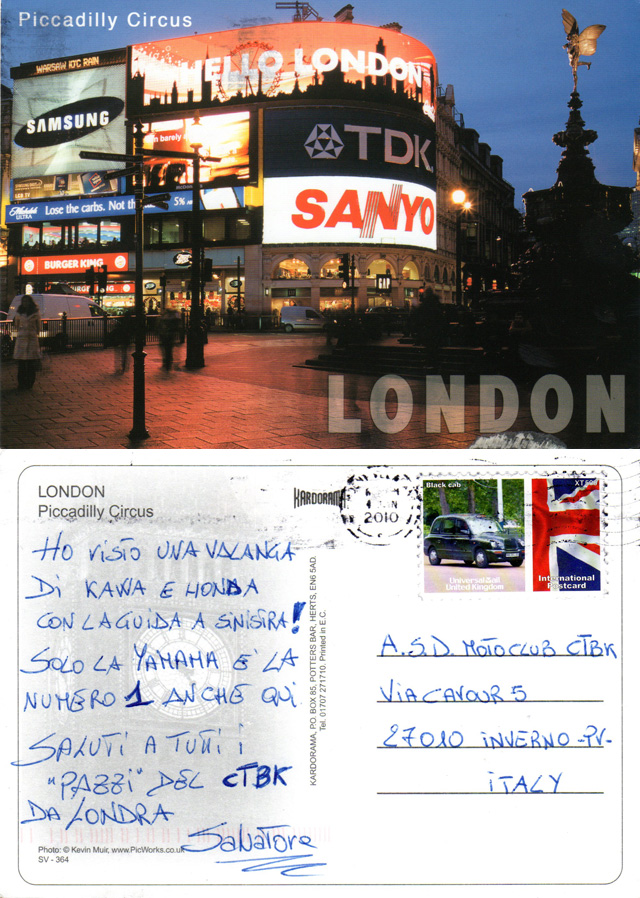 Piccadilly Circus
WARSAW 10°C RAIN
HELLO LONDON
SAMSUNG
TDK
SANYO
barely
ULTRA Lose the carbs. Not the 5%
BURGER KING
Boots
GAP
LONDON
LONDON
Piccadilly Circus
KARDORAMA
2010
Black cab
XT
Universal Mail
United Kingdom
International
Postcard
HO VISTO UNA VALANGA
DI KAWA E HONDA
CON LA GUIDA A SINISTRA!
SOLO LA YAMAHA E' LA
NUMERO 1 ANCHE QUI
SALUTI A TUTTI I
"PAZZI" DEL CTBK
DA LONDRA
Salvatore
KARDORAMA, P.O. BOX 85, POTTERS BAR, HERTS, EN6 5AD.
Tel. 01707 271710. Printed in E.C.
A.S.D. MOTOCLUB CTBK
VIA CAVOUR 5
27010 INVERNO -PV-
ITALY
Photo: © Kevin Muir, www.PicWorks.co.uk
SV - 364